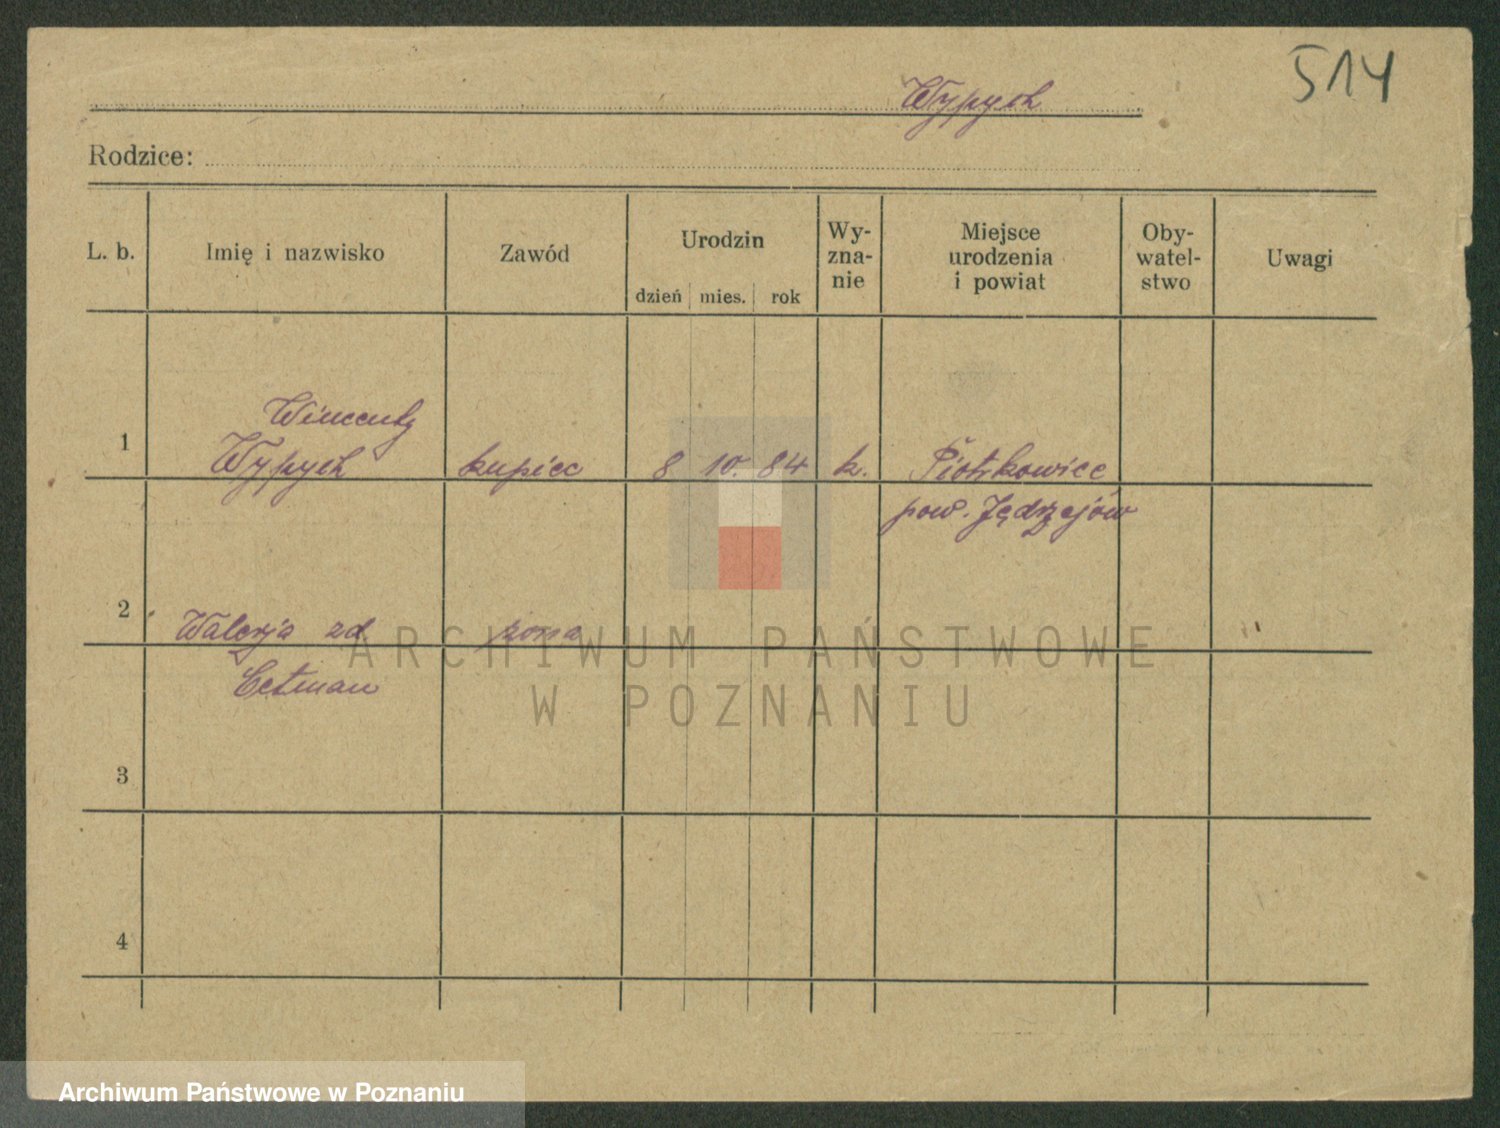 514
Wypych
Rodzice:
L. b. Imię i nazwisko Zawód Urodzin Wy-zna-nie Miejsce urodzenia i powiat Oby-watel-stwo Uwagi
dzień mies. rok
Wincenty
1 Wypych kupiec 8 10. 84 k. Piotrkowice
pow. Jędrzejów
2 Walerja zd. żona
Cetman
3
4
ARCHIWUM PAŃSTWOWE
W POZNANIU
Archiwum Państwowe w Poznaniu